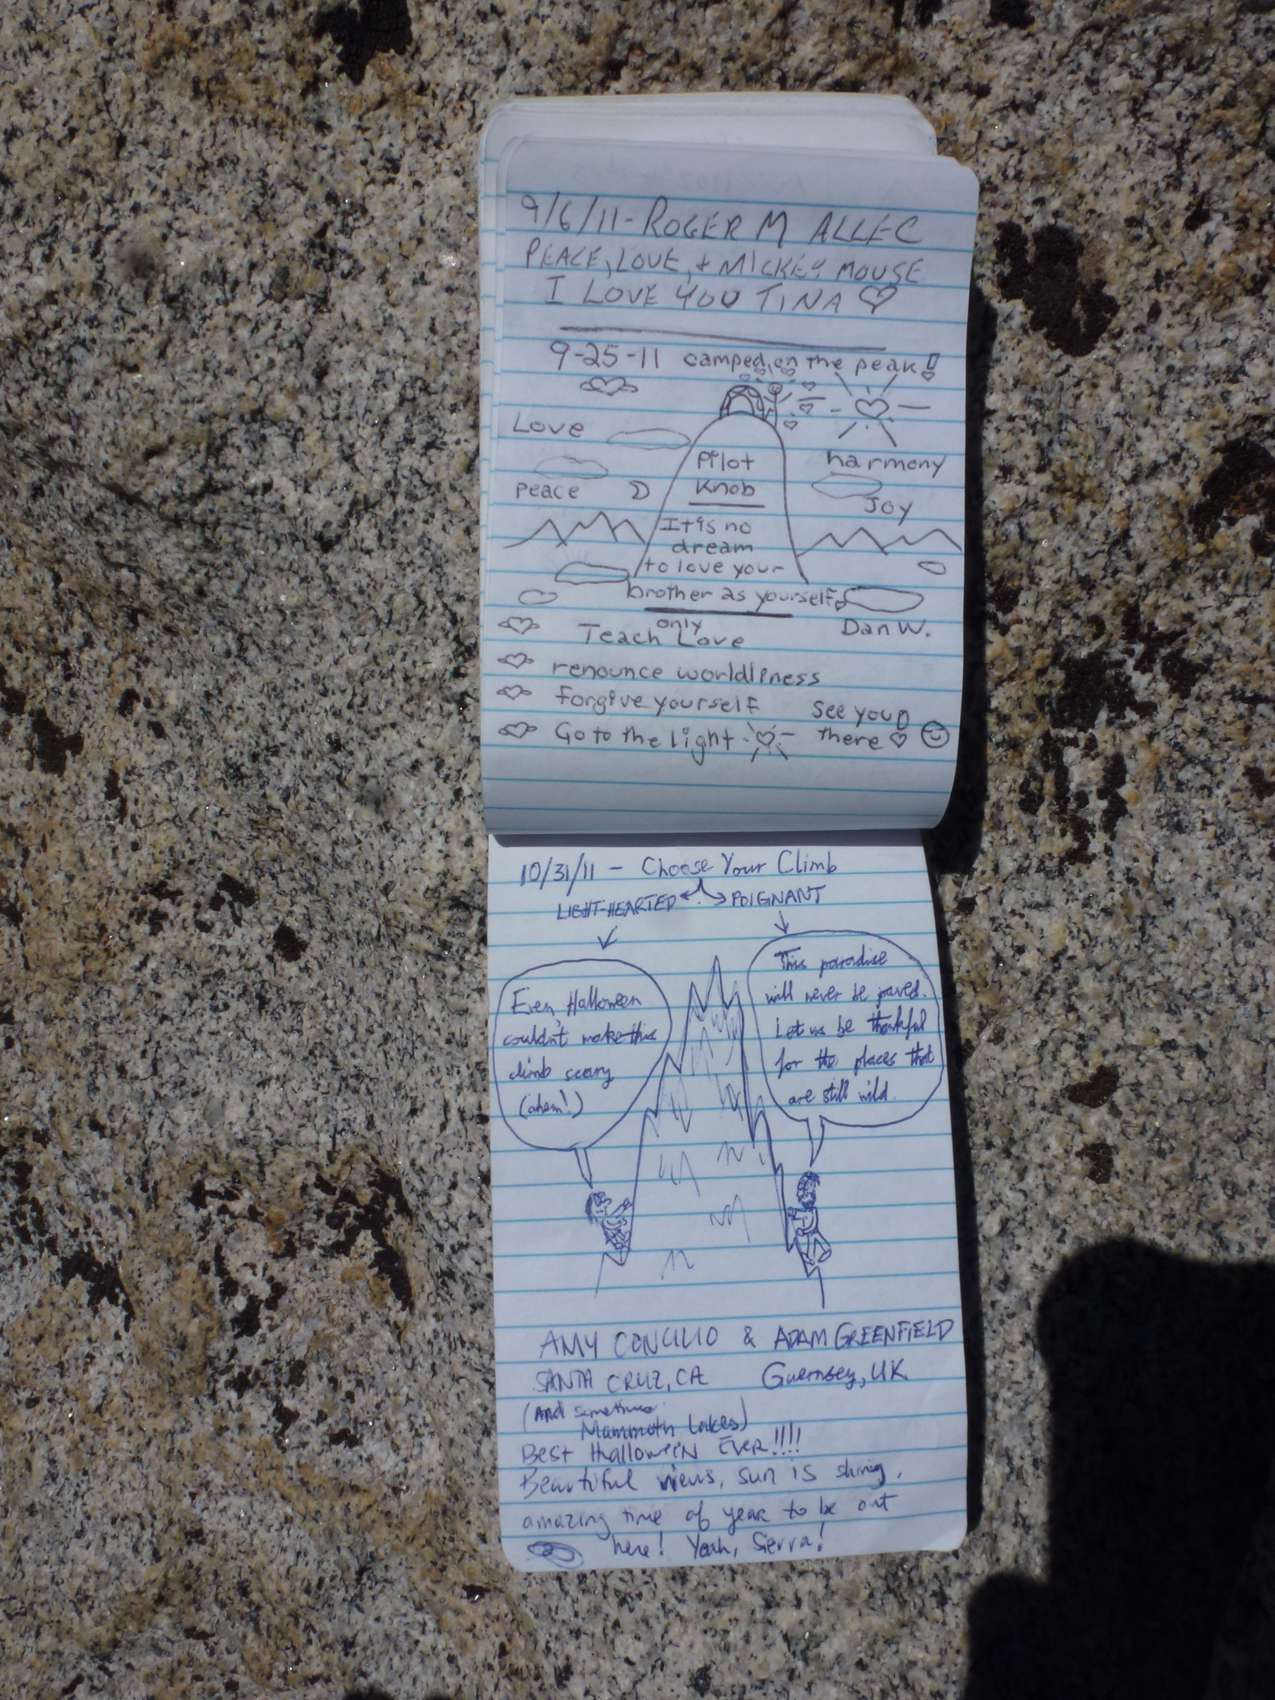 9/6/11-ROGER M ALLEC
PEACE, LOVE, + MICKEY MOUSE
I LOVE YOU TINA
9-25-11 camped on the peak!
Love
Pilot
harmony
Knob
peace
Joy
It is no
dream
to love your
brother as yourself
Dan W.
only
Teach Love
renounce worldliness
forgive yourself
See you
Go to the light
there
10/31/11 - Choose Your Climb
LIGHT-HEARTED
POIGNANT
Even Halloween
couldn't make this
climb scary
(ahem!)
This paradise
will never be paved.
Let us be thankful
for the places that
are still wild.
AMY CONCILIO & ADAM GREENFIELD
SANTA CRUZ, CA Guernsey, UK
(And sometimes
Mammoth Lakes)
Best Halloween Ever!!!!
Beautiful views, sun is shining,
amazing time of year to be out
here! Yeah, Sierra!